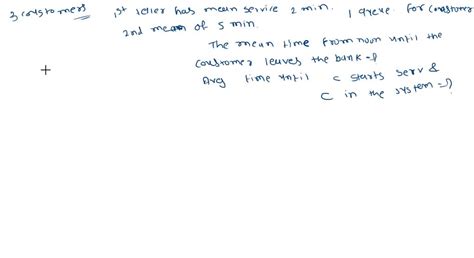 3 customers 1st teller has mean service 2 min. 1 queue. for customer
2nd mean of 5 min.
The mean time from noon until the
customer leaves the bank =?
Avg time until c starts serv &
C in the system =?